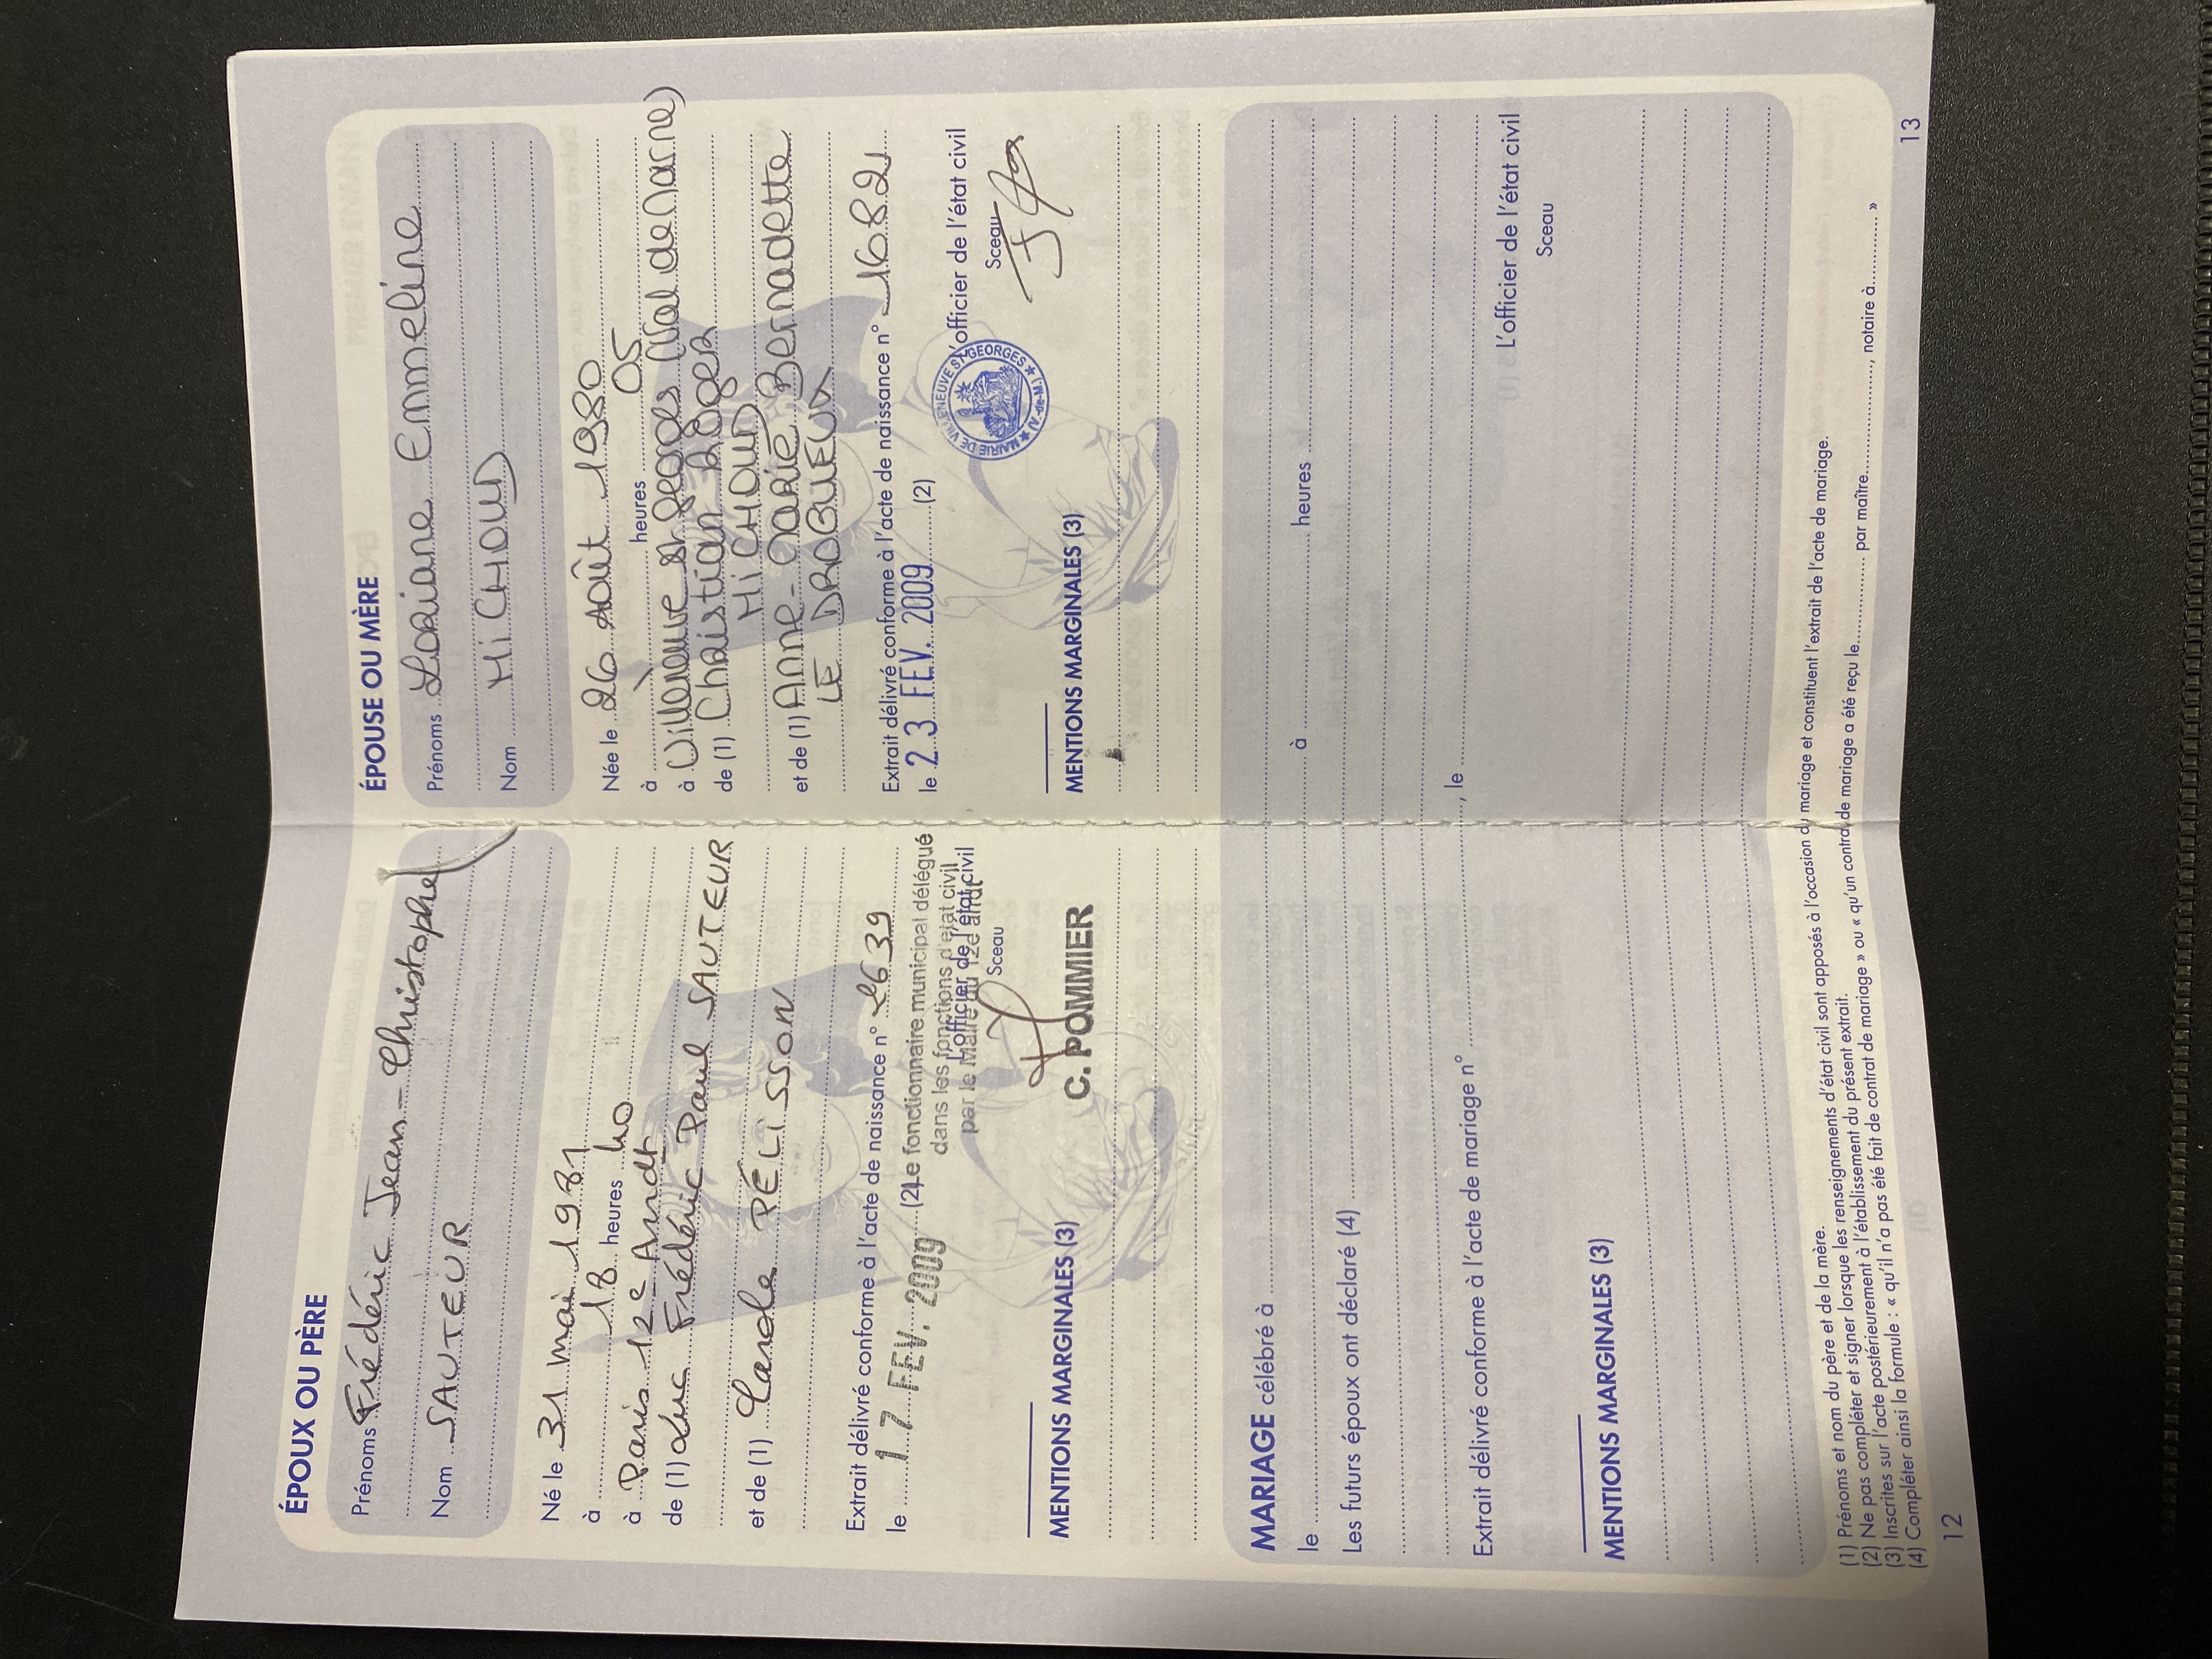 ÉPOUX OU PÈRE
Prénoms Frédéric Jean-Christophe
Nom SAUTEUR
Né le 31 mai 1981
à 18 heures 40
à Paris 12e Arrdt
de (1) Luc Frédéric Paul SAUTEUR
et de (1) Carole PÉLISSON
Extrait délivré conforme à l'acte de naissance n° 2639
le 17 FEV. 2009 (2) Le fonctionnaire municipal délégué
dans les fonctions d'état civil
par le Maire du 12e arrdt
L'officier de l'état civil
Sceau
C. POMMIER
MENTIONS MARGINALES (3)
ÉPOUSE OU MÈRE
Prénoms Loriane Emmeline
Nom MiCHOUD
Née le 26 Août 1980
à heures 05
à Villeneuve St Georges (Val de Marne)
de (1) Christian Roger
MiCHOUD
et de (1) Anne-Marie, Bernadette
LE DROGUEUX
Extrait délivré conforme à l'acte de naissance n° 1682
le 23 FEV. 2009 (2)
L'officier de l'état civil
Sceau
MAIRIE DE VILLENEUVE ST GEORGES (V.-de-M.)
MENTIONS MARGINALES (3)
MARIAGE célébré à
le à heures
Les futurs époux ont déclaré (4)
, le
Extrait délivré conforme à l'acte de mariage n°
L'officier de l'état civil
Sceau
MENTIONS MARGINALES (3)
(1) Prénoms et nom du père et de la mère.
(2) Ne pas compléter et signer lorsque les renseignements d'état civil sont apposés à l'occasion du mariage et constituent l'extrait de l'acte de mariage.
(3) Inscrites sur l'acte postérieurement à l'établissement du présent extrait.
(4) Compléter ainsi la formule : « qu'il n'a pas été fait de contrat de mariage » ou « qu'un contrat de mariage a été reçu le............ par maître............, notaire à............ »
12
13